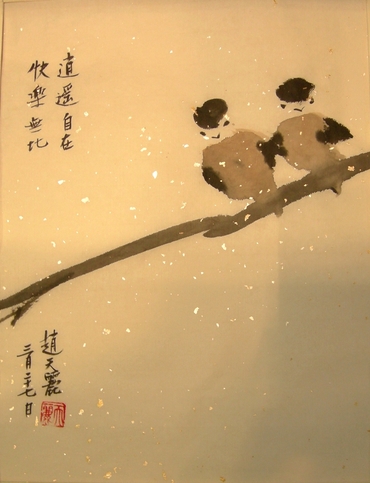 逍遙自在
快樂無比
趙天麗
三月二十七日